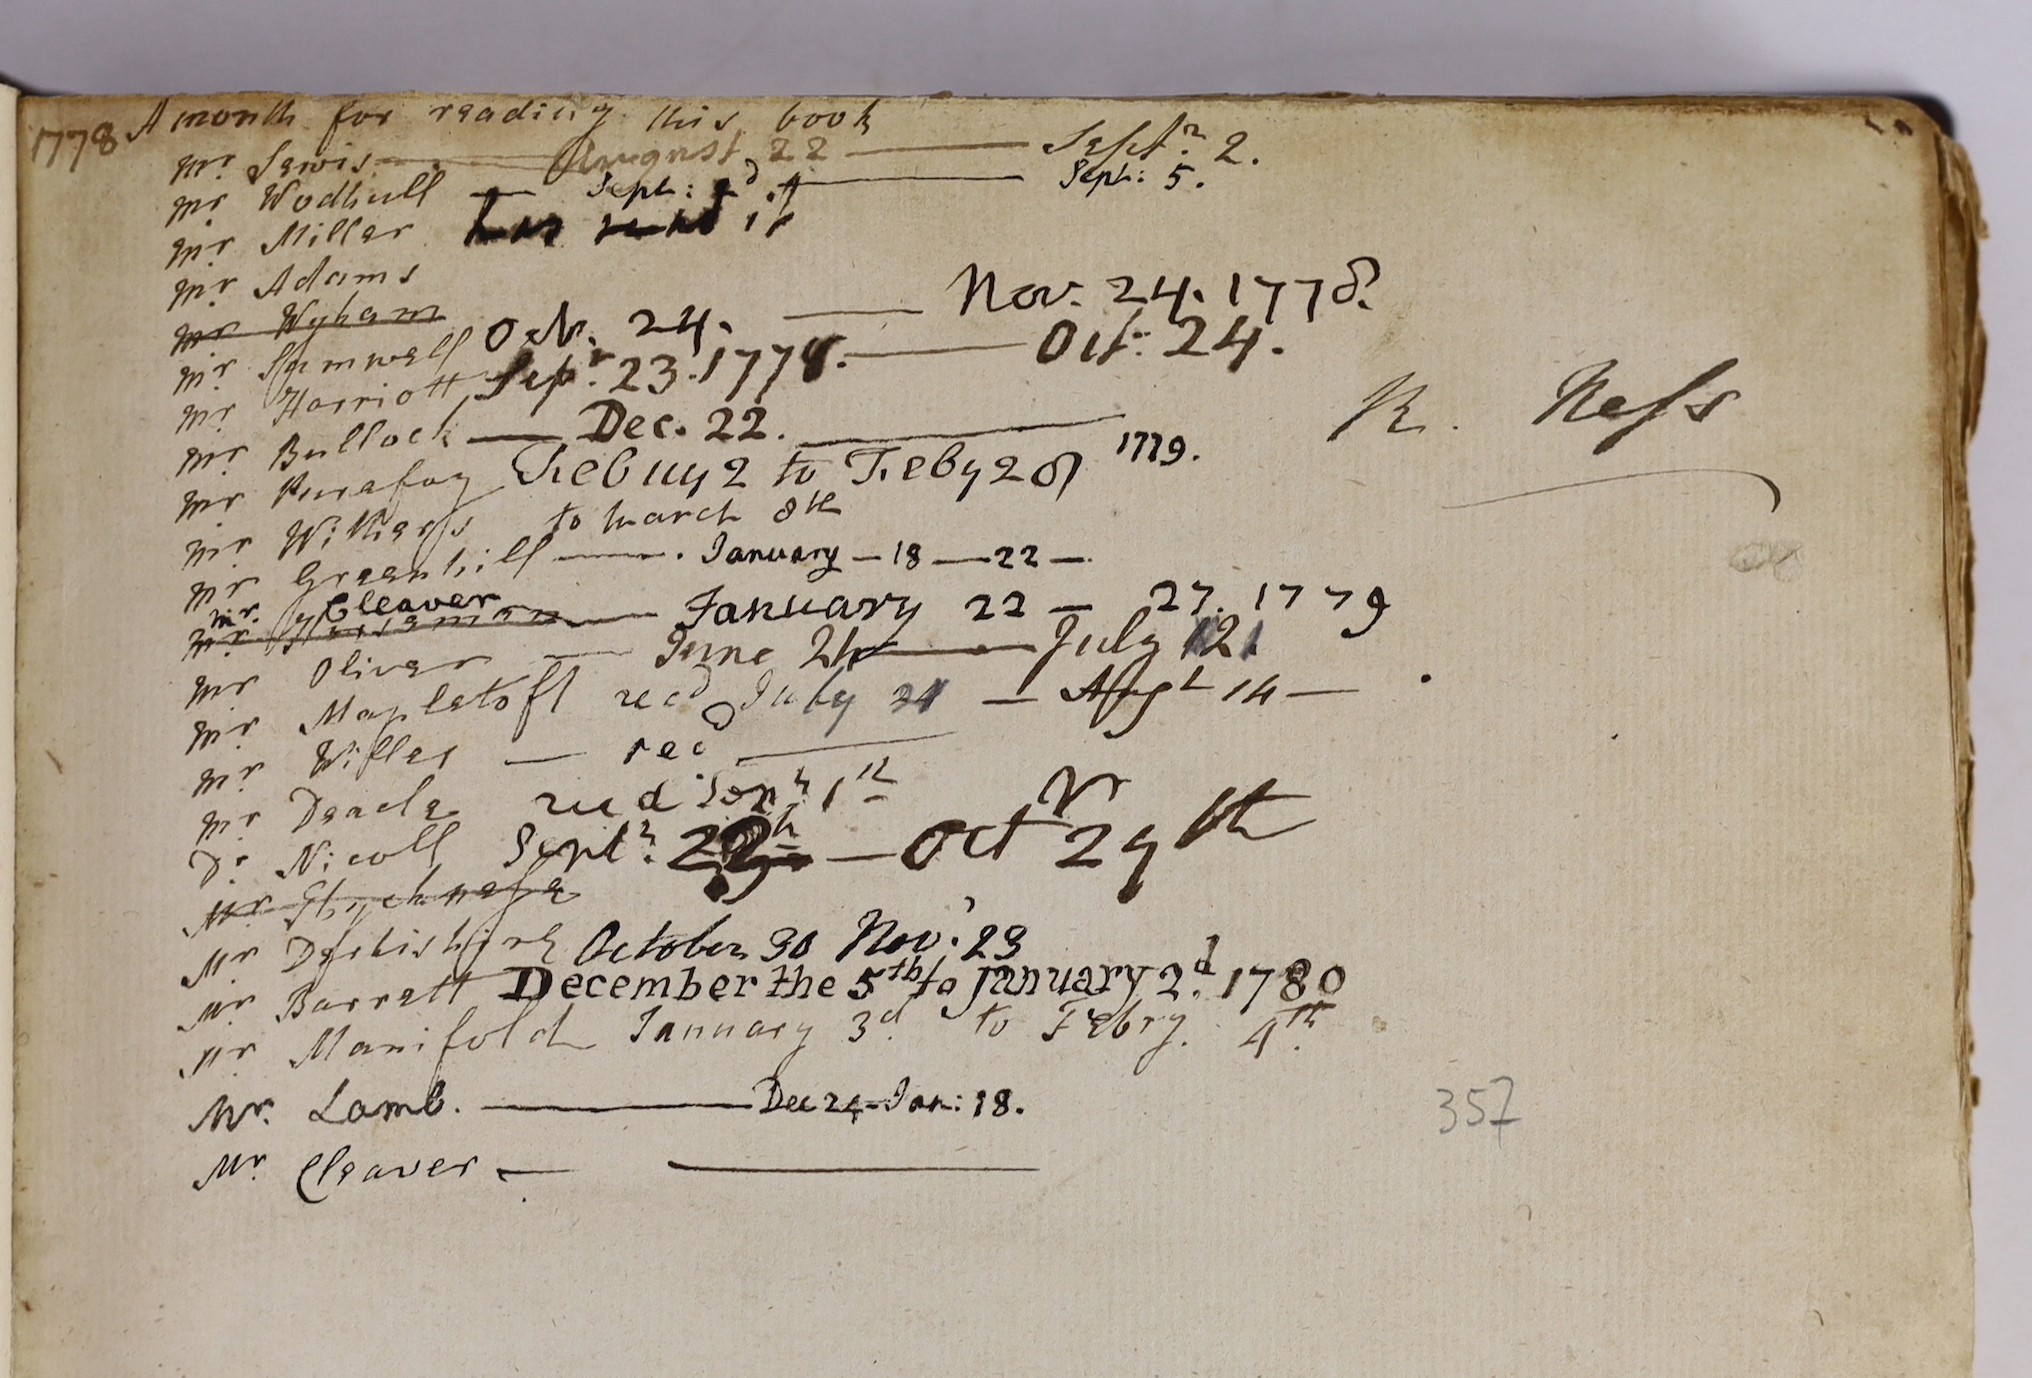 1778 A month for reading this book
Mr Lewis — August 22 — Septr. 2.
Mr Wodhull — Sept: 2d — Sept: 5.
Mr Miller has read it
Mr Adams
Mr Wykam
Mr Samwell Octr. 24. — Nov. 24. 1778.
Mr Harriott Sepr. 23. 1778. — Oct: 24.
Mr Bullock — Dec. 22. —
Mr Purefoy Febuy 2 to Feby 28 1779.
Mr Withers to March 8th
Mr Greenhill — January — 18 — 22 —
Mr. Cleaver — January 22 — 27. 1779
Mr Oliver — June 24 — July 21
Mr Mapletoft recd July 21 — Augt 14 —
Mr Willes — recd —
Mr Deacle recd Sepr 1st
Dr Nicoll Septr. — Octr 29th
Mr
Mr Derbishire October 30 Novr. 23
Mr Barrett December the 5th to January 2d. 1780
Mr Manifold January 3d. to Febry. 4th.
Mr. Lamb. — Dec 24 - Jan: 18.
Mr. Cleaver —
R. Ness
357